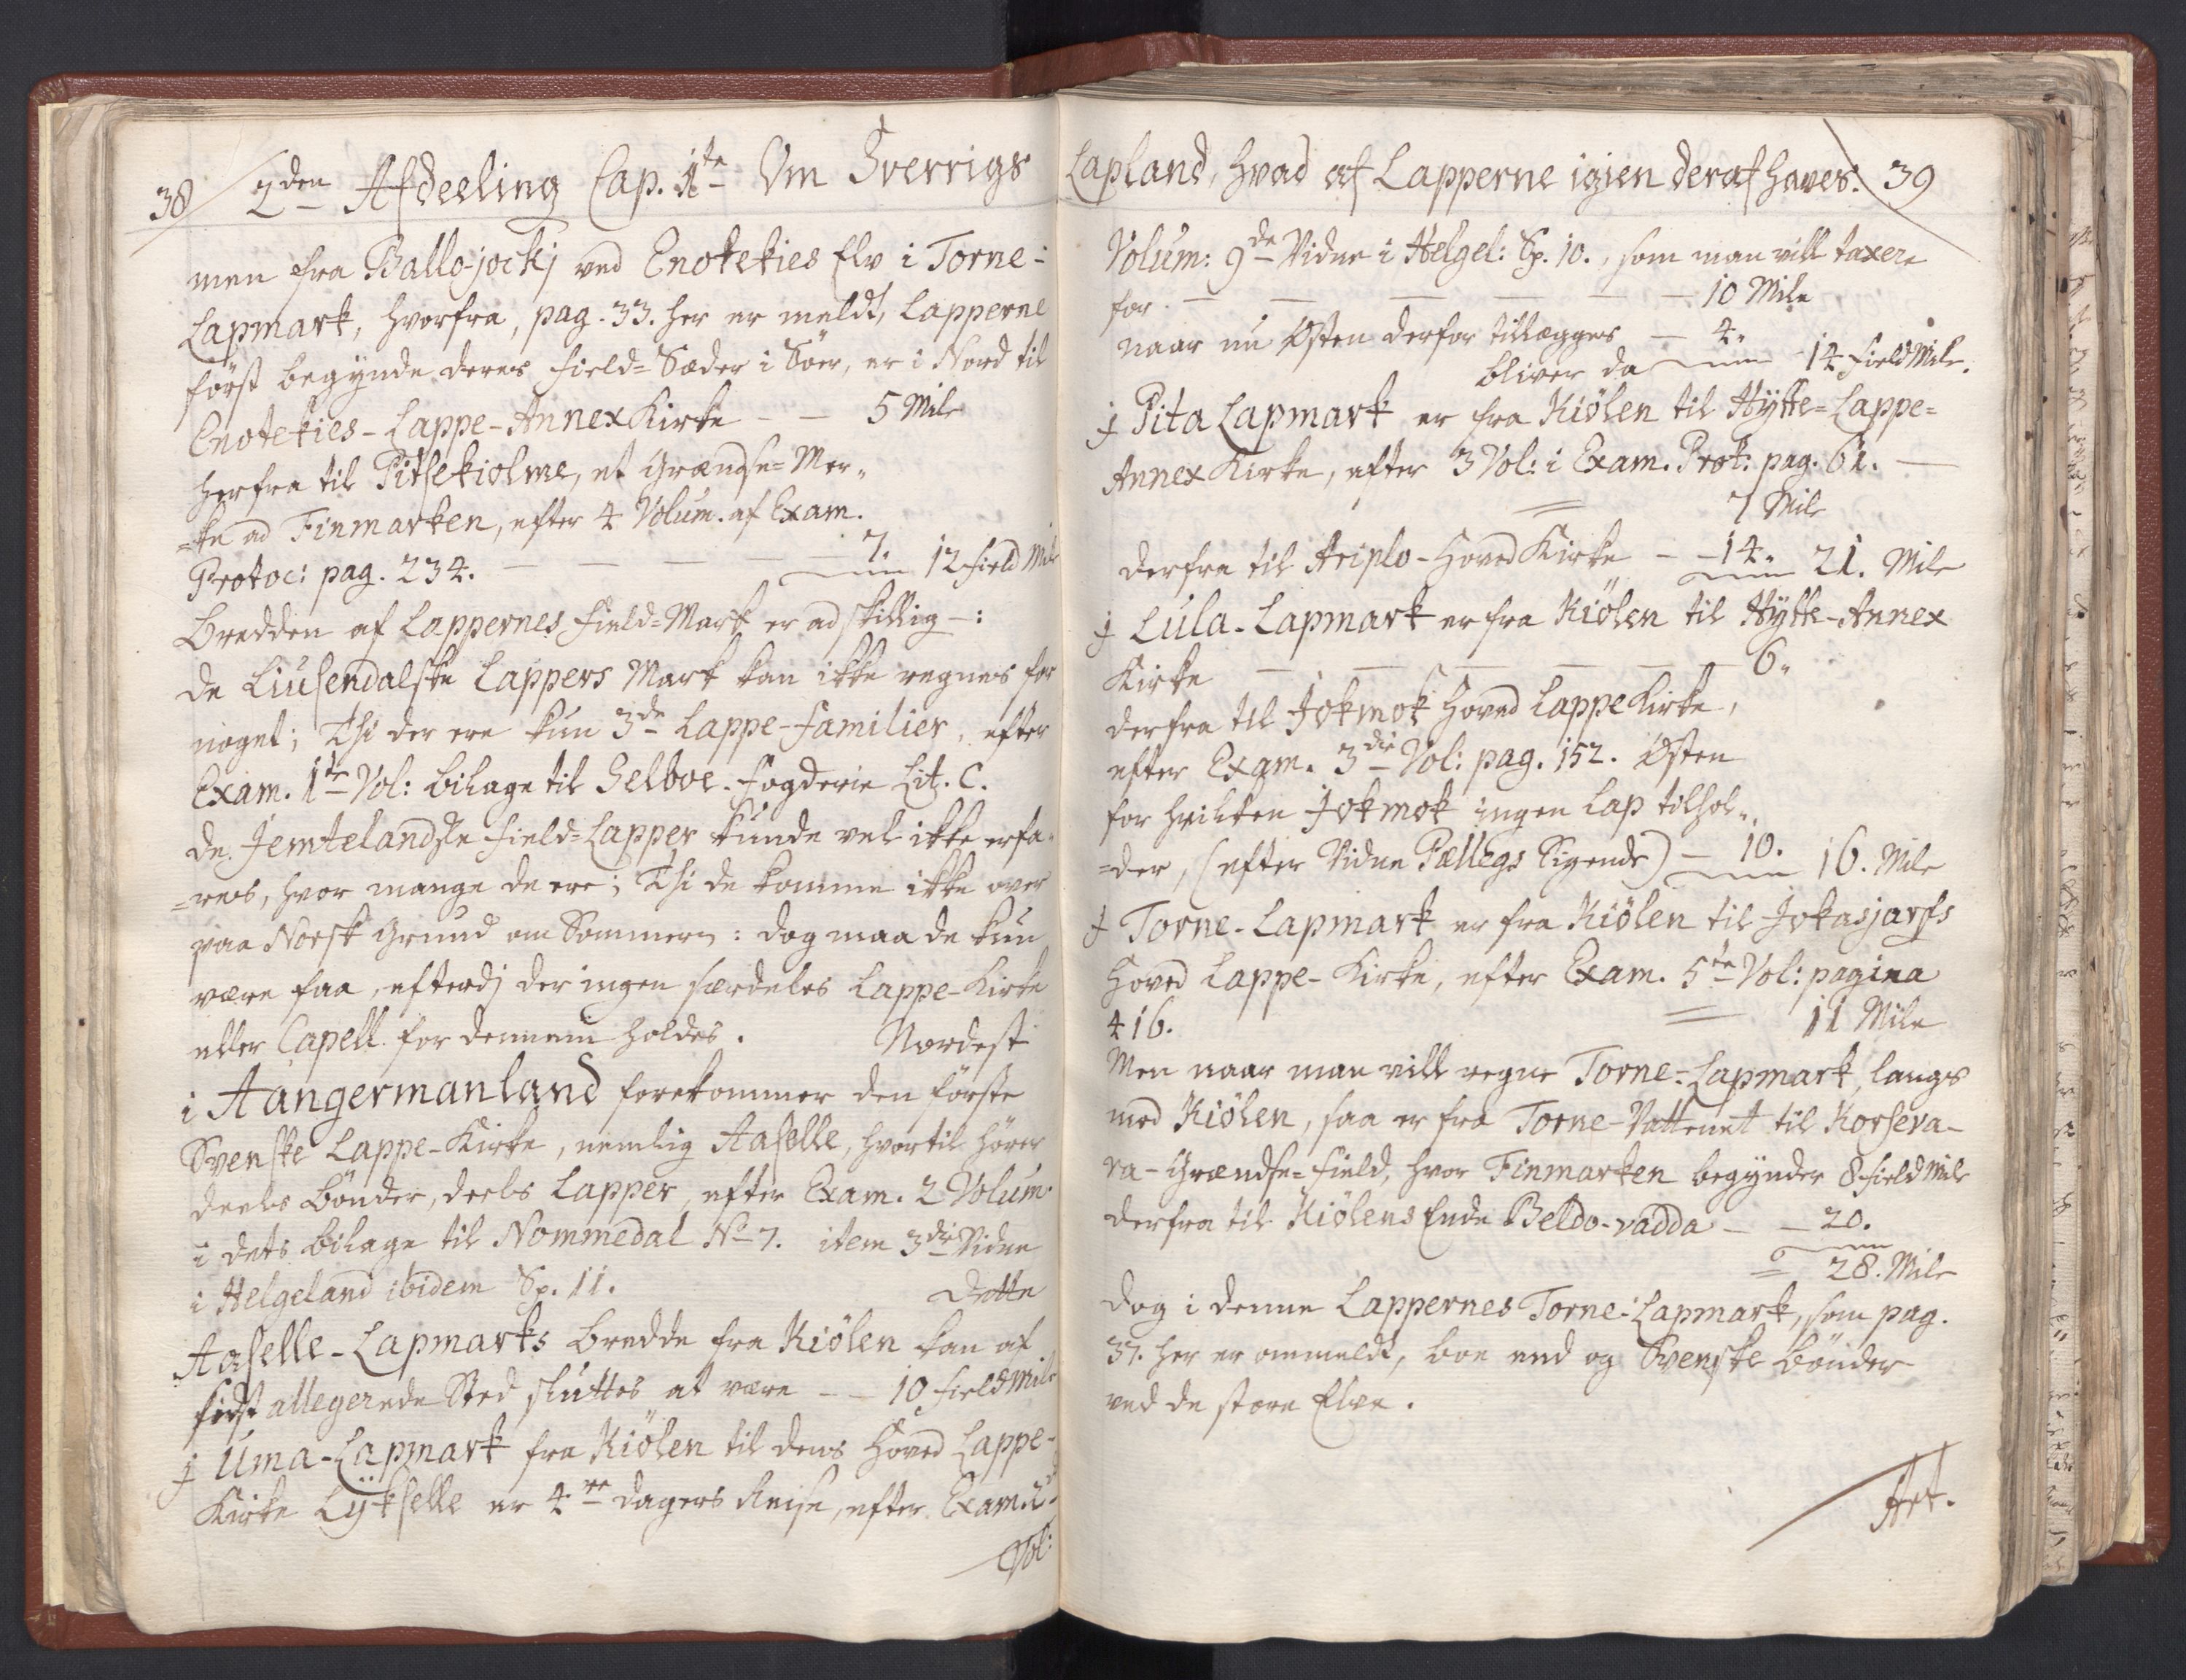 38 2den Afdeeling Cap. 1te Om Sverrigs
men fra Ballo-jockj ved Enotekies Elv i Torne-
Lapmark, hvorfra, pag. 33. her er meldt, Lapperne
först begynde deres Field-Sæder i Söer, er i Nord til
Enotekies-Lappe-Annex Kirke - - 5 Mile
herfra til Pitsekiolme, et Grændse-Mer„
=ke ad Finmarken, efter 4 Volum. af Exam.
Protoc: pag. 234. - - - - 7. 12 Field Mile
Bredden af Lappernes Field-Mark er adskillig-:
de Liusendalske Lappers Mark kan ikke regnes for
noget; Thi der ere kun 3de Lappe-familier, efter
Exam. 1te Vol: bilage til Selboe-Fogderie Lit. C.
de Jemtelandske Field-Lapper kunde vel ikke erfa-
=res, hvor mange de ere; Thi de komme ikke over
paa Norsk Grund om Sommeren: dog maa de kun
være faa, efterdj der ingen særdeles Lappe-Kirke
eller Capell for dennem holdes. Nordest
i Aangermanland forekommer den förste
Svenske Lappe-Kirke, nemlig Aaselle, hvortil hörer
deels Bönder, deels Lapper, efter Exam. 2 Volum.
i dets bilage til Nommedal No 7. item 3die Vidne
i Helgeland ibidem Sp. 11. Dette
Aaselle-Lapmarks bredde fra Kiölen kan af
sidst allegerede Sted sluttes at være - - 10 Field Mile
j Uma-Lapmark fra Kiölen til dens Hoved Lappe-
Kirke Lÿkselle er 4re dagers Reise, efter Exam. 2
Vol:
Lapland, hvad af Lapperne igien deraf haves. 39
Volum: 9de Vidne i Helgel: Sp. 10., som man vill taxere
for - - - - - - 10 Mile
naar nu Østen derfor tillægges - 4.
bliver da 14 Field Mile.
j Pita Lapmark er fra Kiölen til Hÿtte-Lappe-
Annex Kirke, efter 3 Vol: i Exam. Prot: pag. 61. -
= 7 Mile
derfra til Ariplo-Hoved Kirke - - 14. 21. Mile
j Lula-Lapmark er fra Kiölen til Hÿtte-Annex
Kirke - - - - - 6.
derfra til Jokmok Hoved Lappe Kirke,
efter Exam. 3die Vol: pag. 152. Østen
for hvilken Jokmok ingen Lap tilhol„
=der, (efter Vidne Pællegs Sigende) - 10. 16. Mile
j Torne-Lapmark er fra Kiölen til Jokasjarfs
Hoved Lappe-Kirke, efter Exam. 5te Vol: pagina
416. = 11 Mile
Men naar man vill regne Torne-Lapmark langs
med Kiölen, saa er fra Torne-Vattenet til Korseva-
ra-Grændse-Field, hvor Finmarken begynder 8 Field Mile
derfra til Kiölens Ende Beldo-vadda - - 20.
= 28. Mile
dog i denne Lappernes Torne-Lapmark, som pag.
37. her er ommeldt, boe end og Svenske bönder
ved de store Elve.
Art.